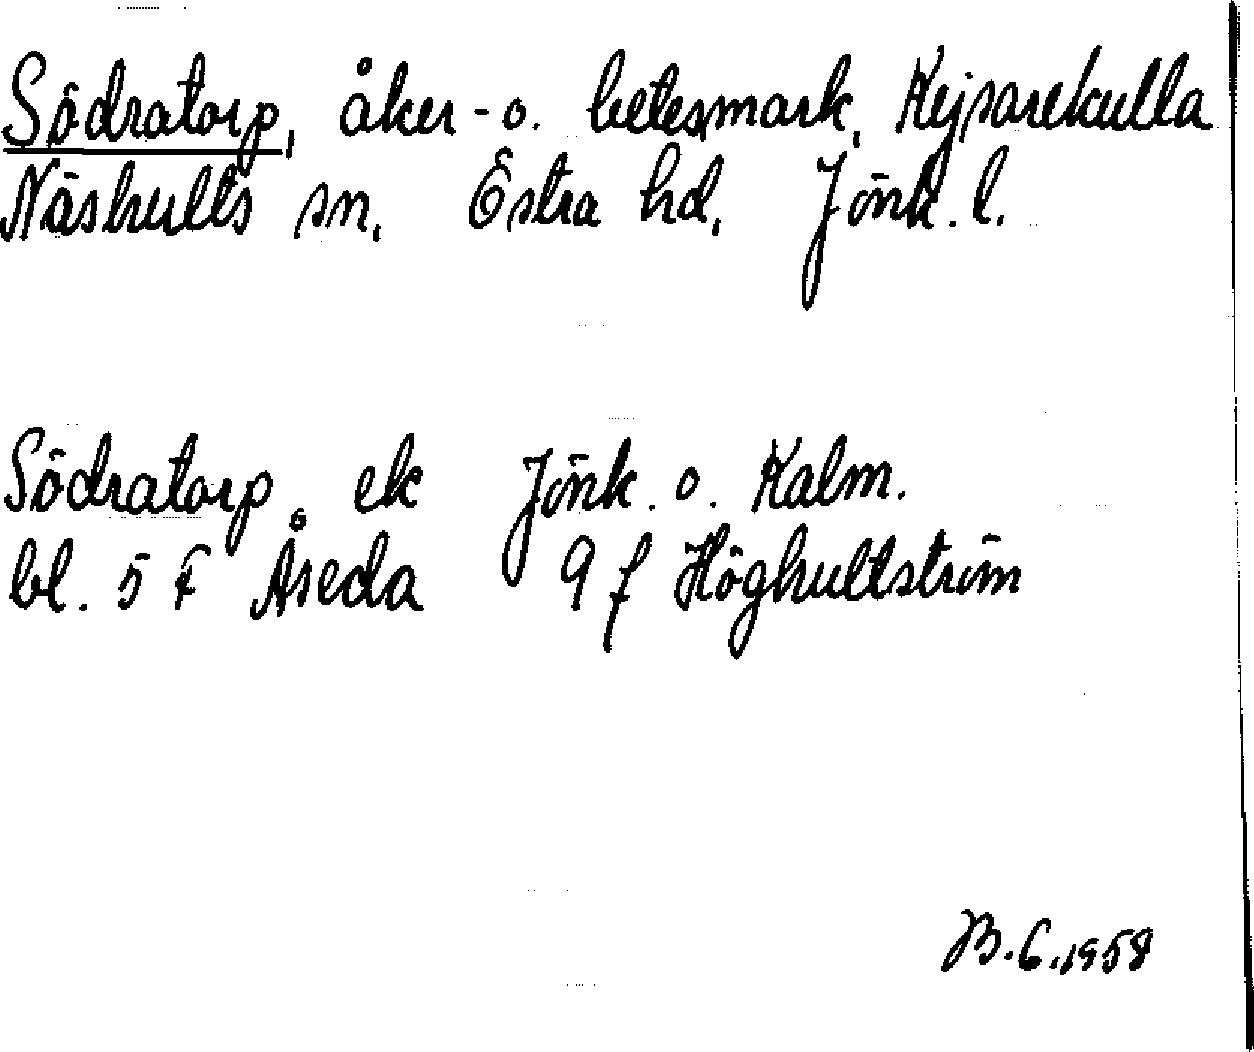 Södratorp, åker- o. betesmark, Kejsarekulla
Näshults sn, Östra hd, Jönk. l.
Södratorp, ek Jönk. o. Kalm.
bl. 5 F Åseda 9 f Höghultström
B. G. 1958